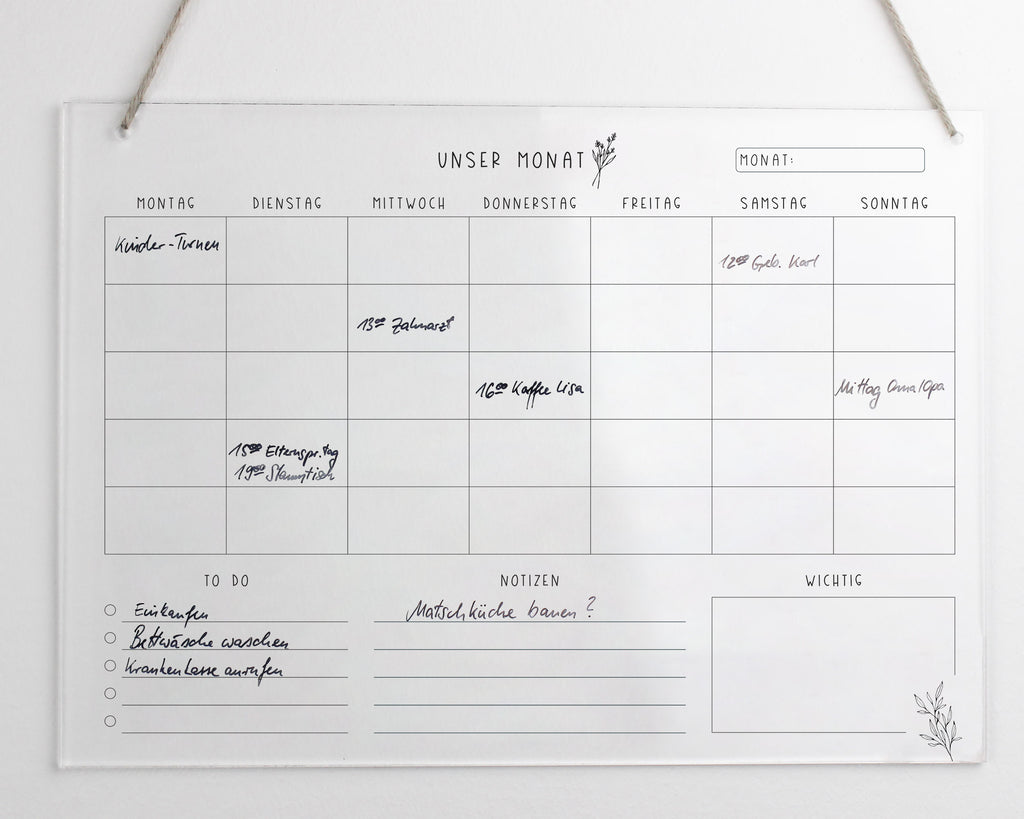 UNSER MONAT
MONAT:
MONTAG DIENSTAG MITTWOCH DONNERSTAG FREITAG SAMSTAG SONNTAG
Kinder-Turnen
12⁰⁰ Geb. Karl
13⁰⁰ Zahnarzt
16⁰⁰ Kaffee Lisa
Mittag Oma/Opa
15⁰⁰ Elternspr.tag
19⁰⁰ Stammtisch
TO DO
Einkaufen
Bettwäsche waschen
Krankenkasse anrufen
NOTIZEN
Matschküche bauen?
WICHTIG